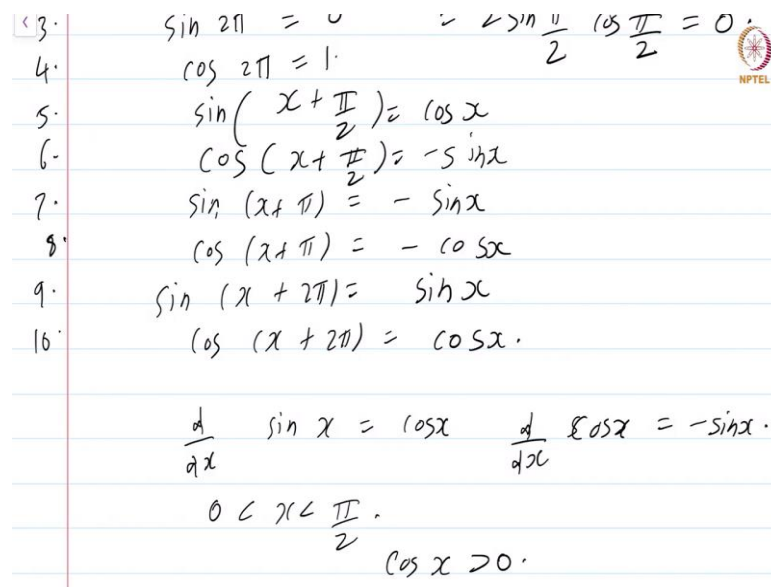 3. sin 2π = 0 = 2 sin π/2 cos π/2 = 0.
4. cos 2π = 1.
NPTEL
5. sin(x + π/2) = cos x
6. cos (x + π/2) = -sin x
7. sin (x + π) = - sin x
8. cos (x + π) = - cos x
9. sin (x + 2π) = sin x
10. cos (x + 2π) = cos x.
d/dx sin x = cos x d/dx cos x = -sin x.
0 < x < π/2.
cos x > 0.